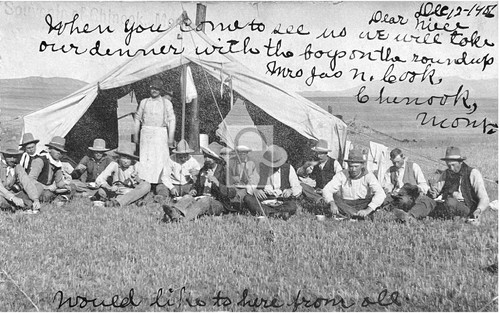 Dec, 12-1908
Dear niece
When you come to see us we will take
our dinner with the boys on the roundup
Mrs Jas N. Cook,
Chenook,
Mont-
Would like to here from all-